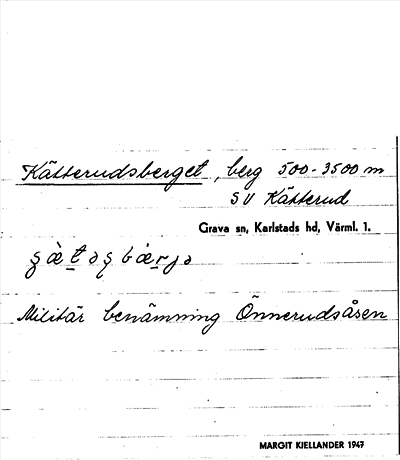 Kätterudsberget, berg 500-3500 m
SV Kätterud
Grava sn, Karlstads hd, Värml. l.
Militär benämning Önnerudsåsen
MARGIT KIELLANDER 1947